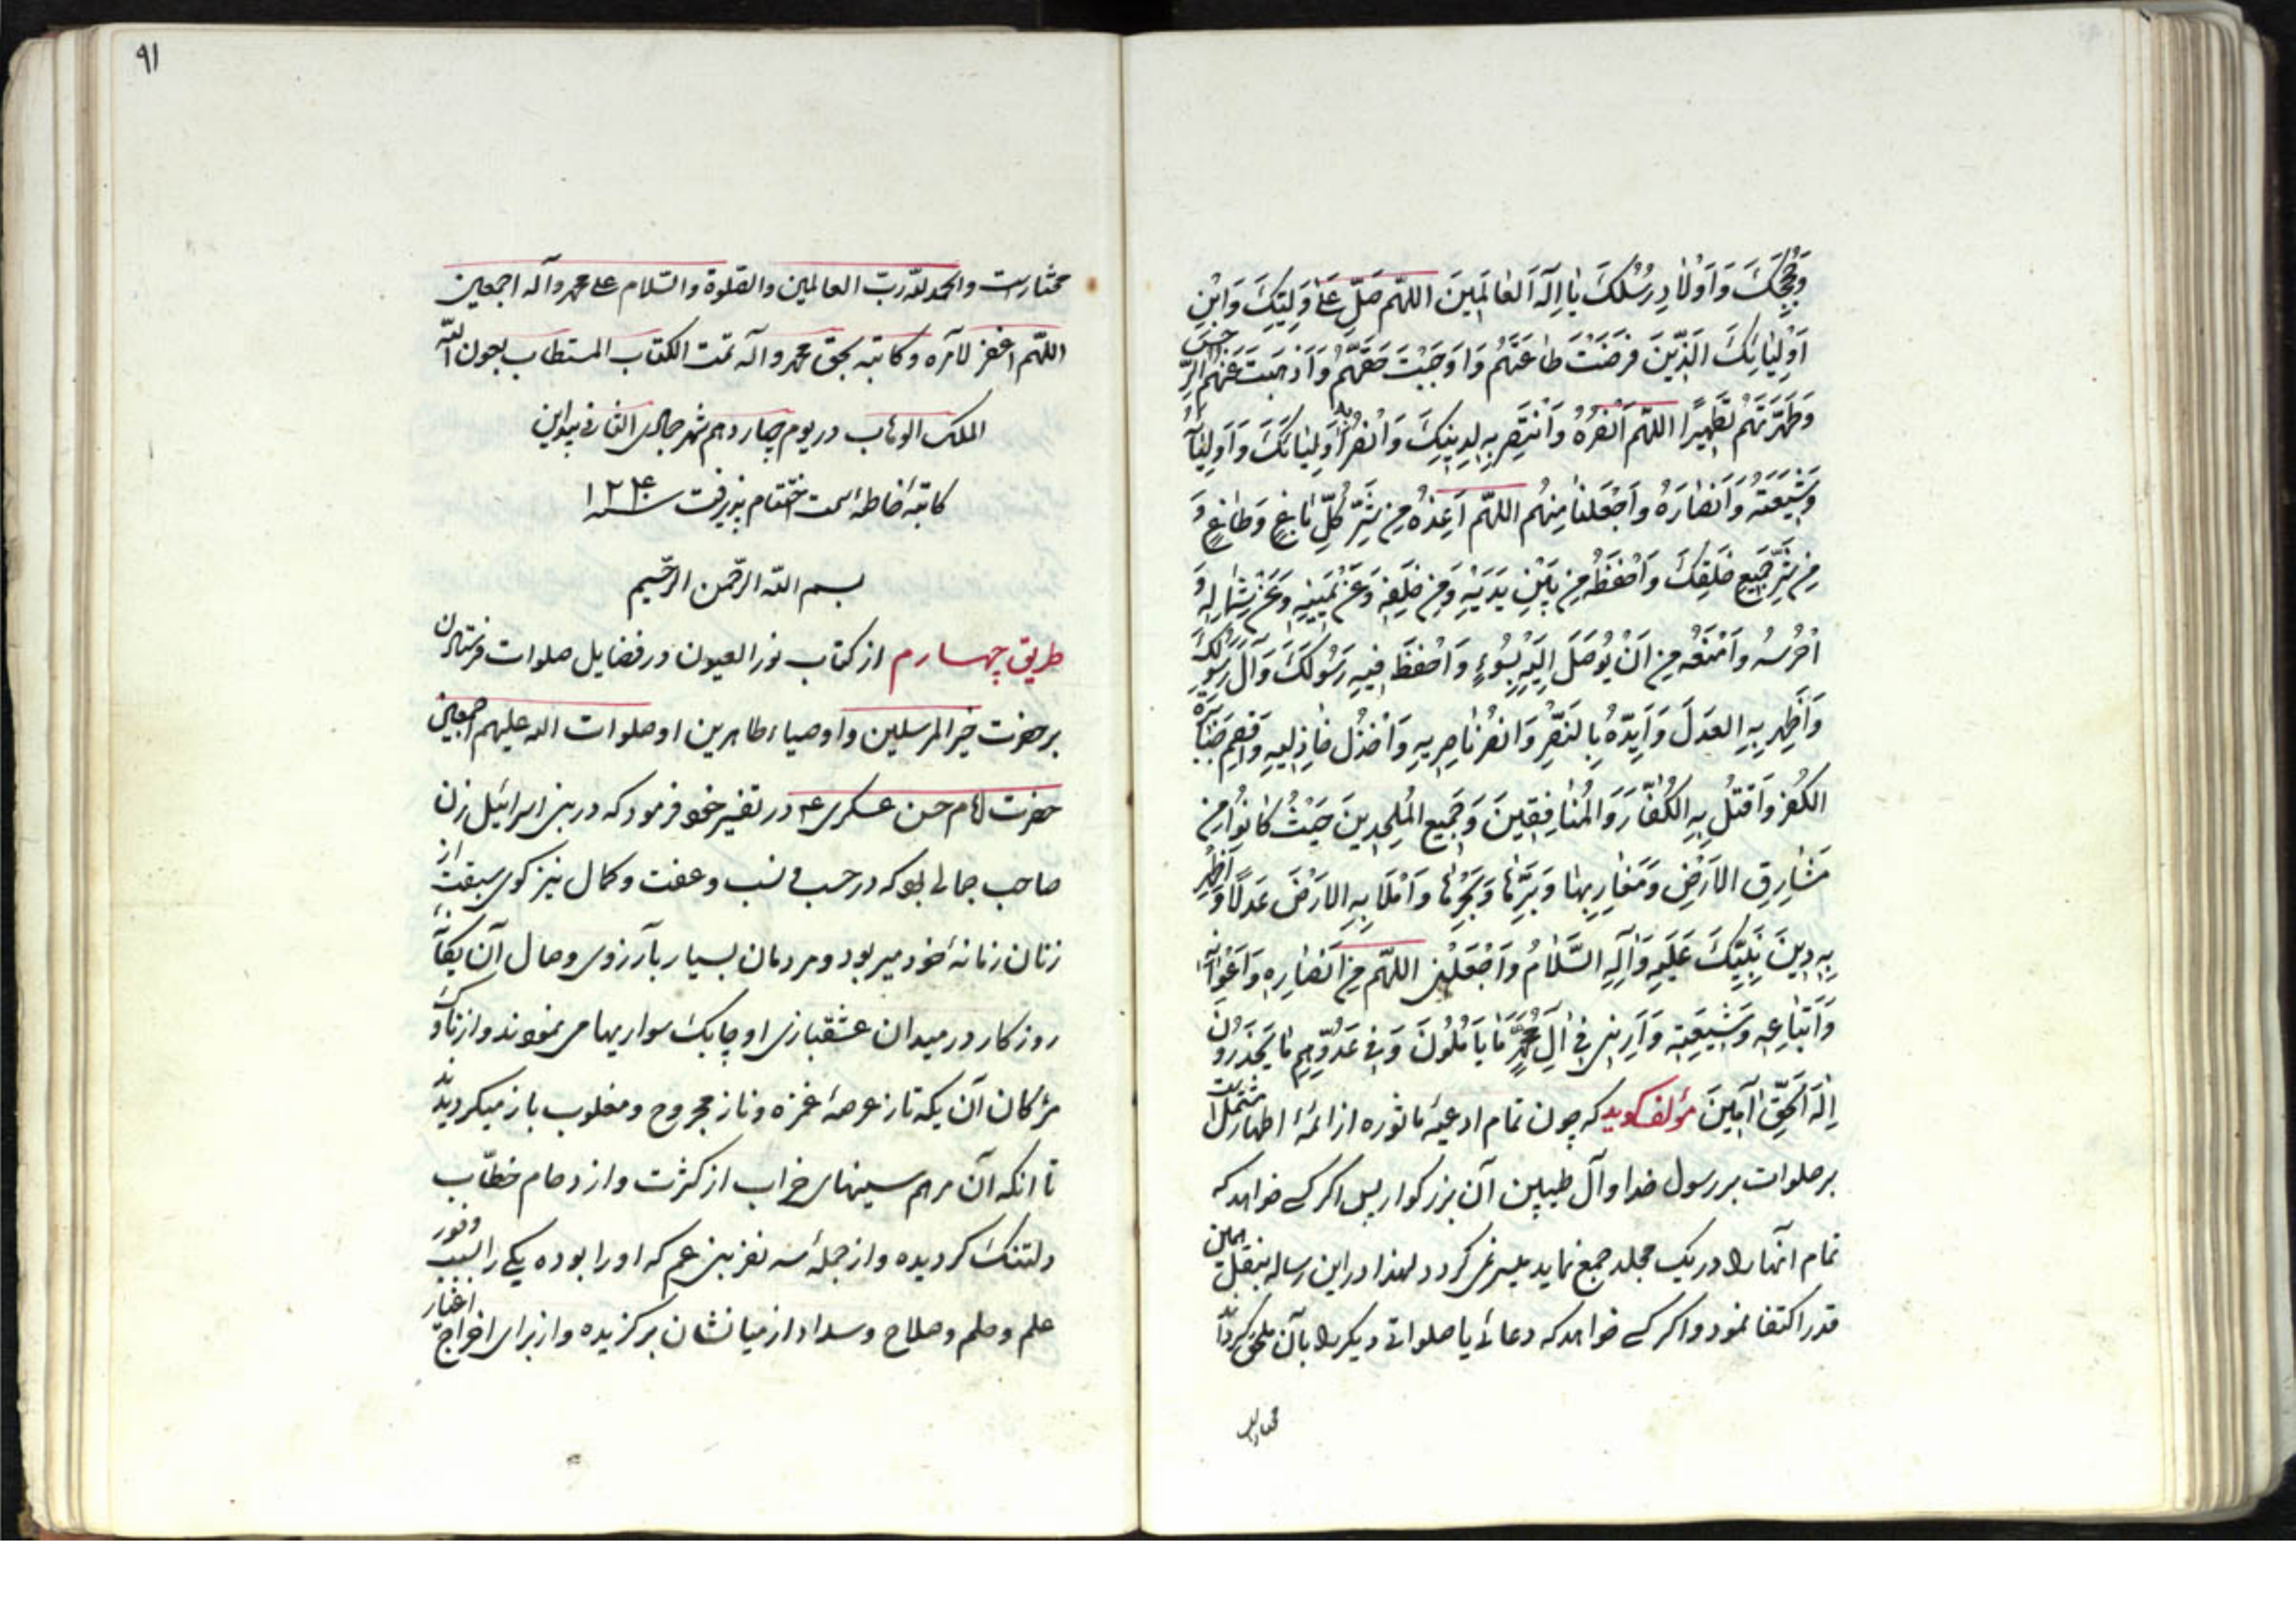 وَحُجَجِكَ وَاَوْلٰادِ رُسُلِكَ يٰا اِلٰهَ الْعٰالَمِينَ اللّهُمَّ صَلِّ عَلٰى وَلِيِّكَ وَابْنِ
اَوْلِيٰائِكَ الَّذِينَ فَرَضْتَ طٰاعَتَهُمْ وَاَوْجَبْتَ حَقَّهُمْ وَاَذْهَبْتَ عَنْهُمُ الرِّجْسَ
وَطَهَّرْتَهُمْ تَطْهِيرًا اللّهُمَّ انْصُرْهُ وَانْتَصِرْ بِهِ لِدِينِكَ وَانْصُرْ بِهِ اَوْلِيٰائَكَ وَاَوْلِيٰائَهُ
وَشِيعَتَهُ وَاَنْصٰارَهُ وَاجْعَلْنٰا مِنْهُمْ اللّهُمَّ اَعِذْهُ مِنْ شَرِّ كُلِّ بٰاغٍ وَطٰاغٍ وَ
مِنْ شَرِّ جَمِيعِ خَلْقِكَ وَاحْفَظْهُ مِنْ بَيْنِ يَدَيْهِ وَمِنْ خَلْفِهِ وَعَنْ يَمِينِهِ وَعَنْ شِمٰالِهِ وَ
احْرُسْهُ وَامْنَعْهُ مِنْ اَنْ يُوصَلَ اِلَيْهِ بِسُوءٍ وَاحْفَظْ فِيهِ رَسُولَكَ وَآلَ رَسُولِكَ
وَاَظْهِرْ بِهِ الْعَدْلَ وَاَيِّدْهُ بِالنَّصْرِ وَانْصُرْ نٰاصِرِيهِ وَاخْذُلْ خٰاذِلِيهِ وَاقْصِمْ جَبٰابِرَةَ
الْكُفْرِ وَاقْتُلْ بِهِ الْكُفّٰارَ وَالْمُنٰافِقِينَ وَجَمِيعَ الْمُلْحِدِينَ حَيْثُ كٰانُوا مِنْ
مَشٰارِقِ الْاَرْضِ وَمَغٰارِبِهٰا وَبَرِّهٰا وَبَحْرِهٰا وَامْلَأْ بِهِ الْاَرْضَ عَدْلًا وَاَظْهِرْ
بِهِ دِينَ نَبِيِّكَ عَلَيْهِ وَآلِهِ السَّلٰامُ وَاجْعَلْنِى اللّهُمَّ مِنْ اَنْصٰارِهِ وَاَعْوٰانِهِ
وَاَتْبٰاعِهِ وَشِيعَتِهِ وَاَرِنِى فِى آلِ مُحَمَّدٍ مٰا يَأْمُلُونَ وَفِى عَدُوِّهِمْ مٰا يَحْذَرُونَ
اِلٰهَ الْحَقِّ آمِينَ مؤلف كويد كه چون تمام ادعيهٔ ماثوره از ائمهٔ اطهار مشتمل است
بر صلوات بر رسول خدا و آل طيبين آن بزركوار پس اكر كسى خواهد كه
تمام آنها را در يك مجلد جمع نمايد ميسر نمى كردد لهذا در اين رساله بنقل همين
قدر اكتفا نمود و اكر كسى خواهد كه دعائى يا صلواتى ديكر را بآن ملحق كرداند
مختار است
٩١
مختار است والحمد للّه ربّ العالمين والصّلوة والسّلام على محمد وآله اجمعين
اللّهم اغفر لآمره وكاتبه بحق محمد وآله تمت الكتاب المستطاب بعون اللّه
الملك الوهاب در يوم چهاردهم شهر جمادى الثانى بيد اين
كاتبهٔ خاطئه سمت اختتام پذيرفت سنه ١٢٤٠
بسم اللّه الرّحمن الرّحيم
طريق چهارم از كتاب نور العيون در فضايل صلوات فرستادن
بر حضرت خير المرسلين و اوصياء طاهرين او صلوات اللّه عليهم اجمعين
حضرت امام حسن عسكرى ع در تفسير خود فرمود كه در بنى اسرائيل زن
صاحب جمالى بود كه در حسب و نسب و عفت و كمال نيز كوى سبقت از
زنان زمانهٔ خود مير بود و مردمان بسيار بآرزوى وصال آن يكتاى
روزكار در ميدان عشقبازى او چابك سواريها مى نمودند و از ناوك
مژكان آن يكه تاز عرصهٔ غمزه و ناز مجروح و مغلوب باز ميكرديدند
تا انكه آن مرهم سينهاى خراب از كثرت و ازدحام خطّاب
دلتنك كرديده و از جملهٔ سه نفر بنى عم كه او را بوده يكى را بسبب وفور
علم و حلم و صلاح و سداد از ميانشان بركزيده و از براى اخراج اغيار